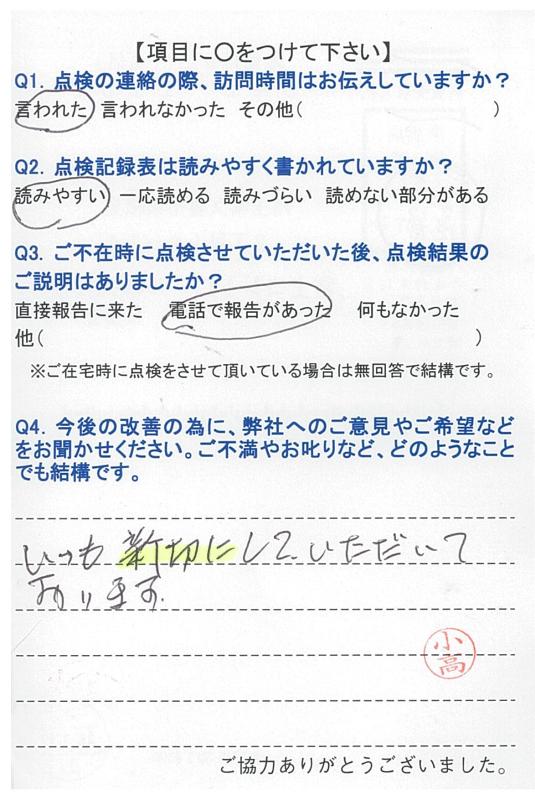 【項目に〇をつけて下さい】
Q1. 点検の連絡の際、訪問時間はお伝えしていますか?
言われた 言われなかった その他( )
Q2. 点検記録表は読みやすく書かれていますか?
読みやすい 一応読める 読みづらい 読めない部分がある
Q3. ご不在時に点検させていただいた後、点検結果の
ご説明はありましたか?
直接報告に来た 電話で報告があった 何もなかった
他( )
※ご在宅時に点検をさせて頂いている場合は無回答で結構です。
Q4. 今後の改善の為に、弊社へのご意見やご希望など
をお聞かせください。ご不満やお叱りなど、どのようなこと
でも結構です。
いつも新切にしていただいて
おります.
小高
ご協力ありがとうございました。